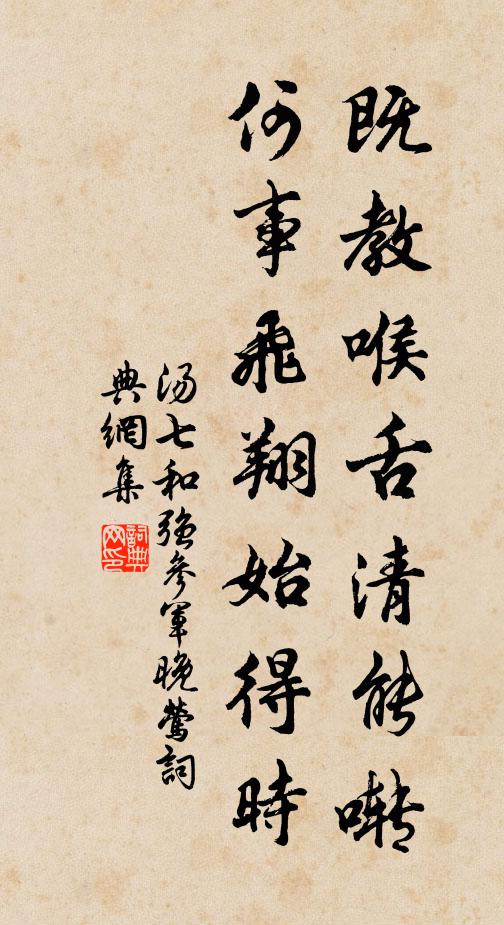 既教喉舌清能囀
何事飛翔始得時
汤七和强參軍晚鶯詞
典網集
詞典網印